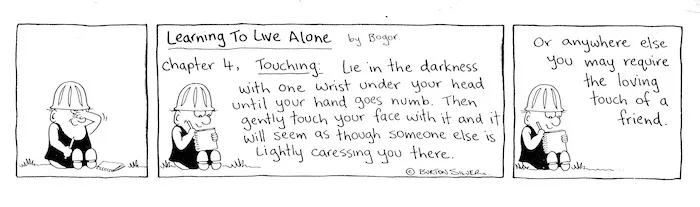 Learning To Live Alone by Bogor
Chapter 4, Touching: Lie in the darkness
with one wrist under your head
until your hand goes numb. Then
gently touch your face with it and it
will seem as though someone else is
Lightly caressing you there.
© BURTON SILVER.
Or anywhere else
you may require
the loving
touch of a
friend.